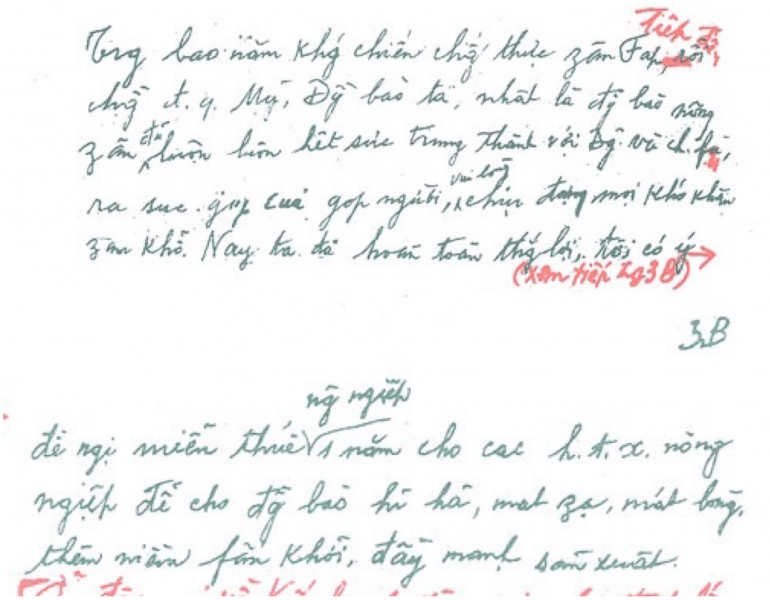 Tiếp
Trg bao năm khg chiến chg' thực zân Fap, rồi
chg' đ. q. Mỹ, Đg̃ bào ta, nhất là đg̃ bào nông
zân đều luôn luôn hết sức trung thành với Đg̃ và ch. fủ,
ra sưc gop của gop người, vui lòng chịu đựng mọi khó khăn
zan khổ. Nay ta đã hoàn toàn thg' lợi, tôi có ý →
(Xem tiếp tg 3B)
3B
ng ngiệp
đề ngị miễn thuế 1 năm cho cac h.t.x. nông
ngiệp để cho đg̃ bào hỉ hả, mat zạ, mát lòng,
thêm niềm fân khởi, đẩy mạnh sản xuất.